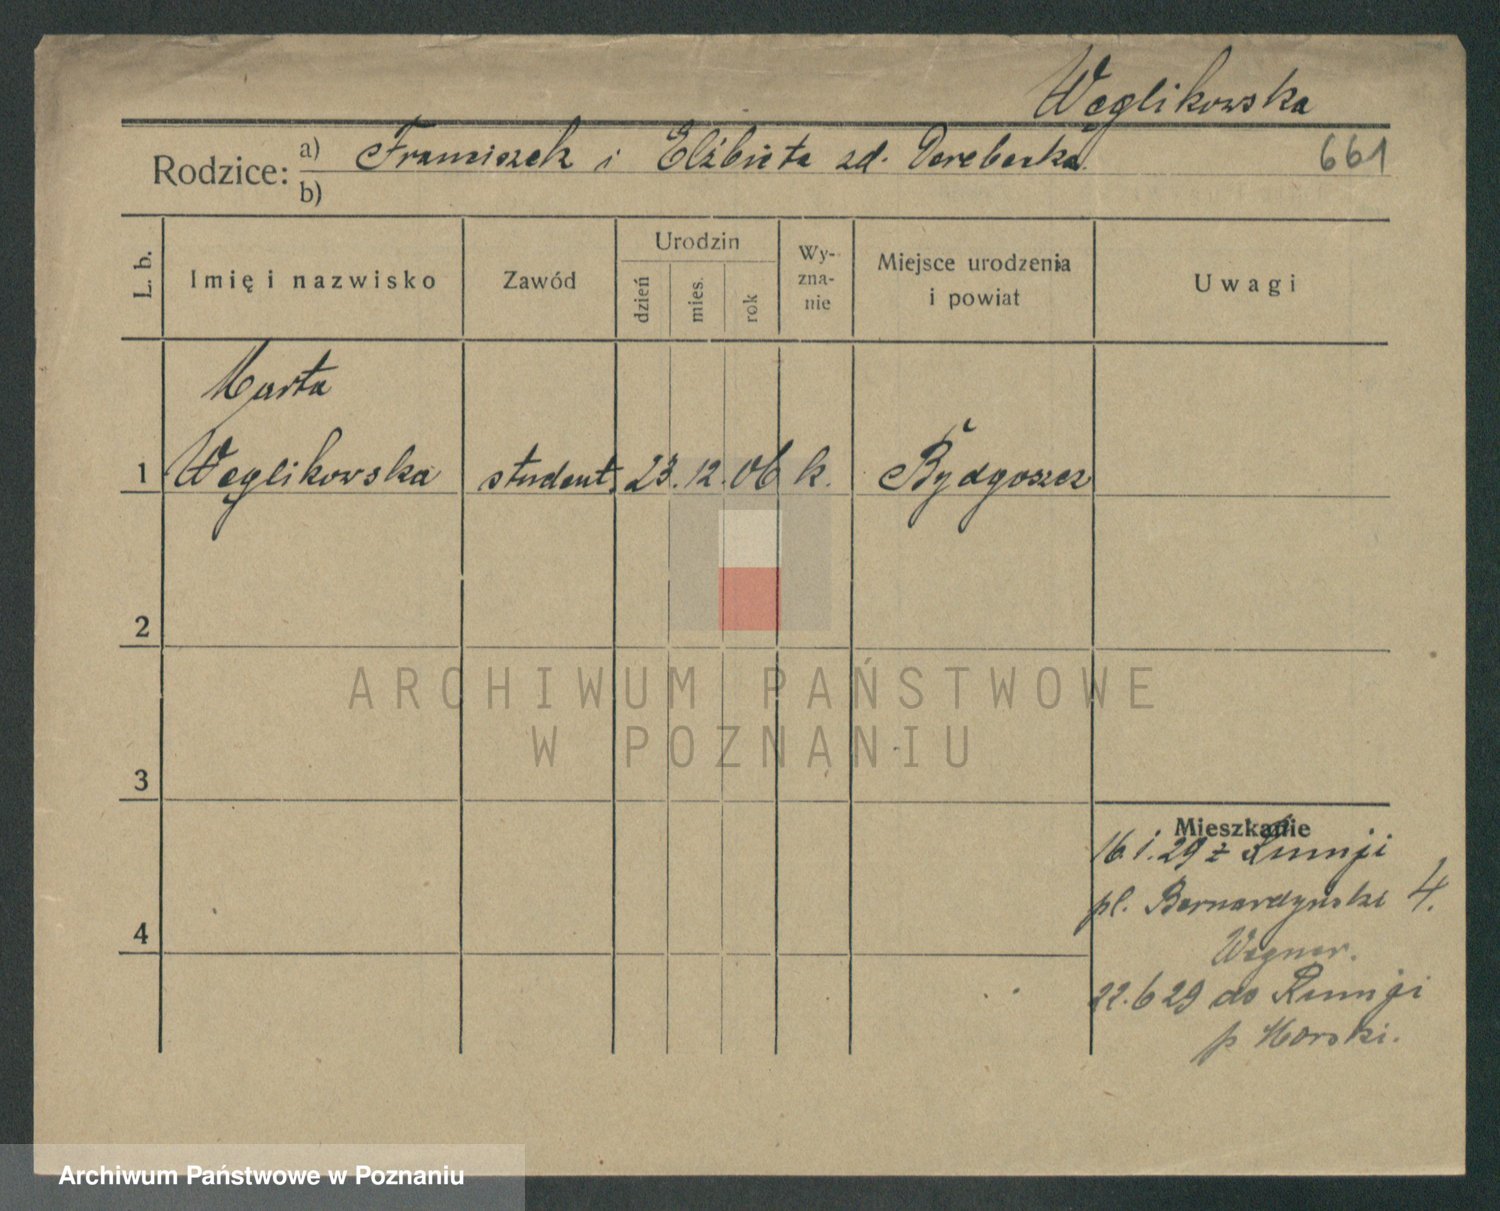 Węglikowska
661
Rodzice: a) Franciszek i Elżbieta zd. Derebecka
b)
L. b.
Imię i nazwisko
Zawód
Urodzin
dzień
mies.
rok
Wy-
zna-
nie
Miejsce urodzenia
i powiat
Uwagi
Marta
1 Węglikowska student. 23. 12. 06 k. Bydgoszcz
2
ARCHIWUM PAŃSTWOWE
W POZNANIU
3
Mieszkanie
16 1. 29 z Rumji
4
pl. Bernardyński 4.
Wegner.
22. 6 29 do Rumji
p Morski.
Archiwum Państwowe w Poznaniu